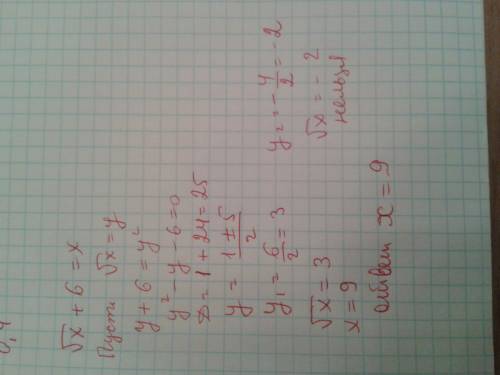 0,4
√x + 6 = x
Пусть √x = y
y + 6 = y²
y² - y - 6 = 0
D = 1 + 24 = 25
y = (1 ± 5)/2
y₁ = 6/2 = 3
y₂ = -4/2 = -2
√x = 3
√x = -2
x = 9
нельзя
ответ x = 9